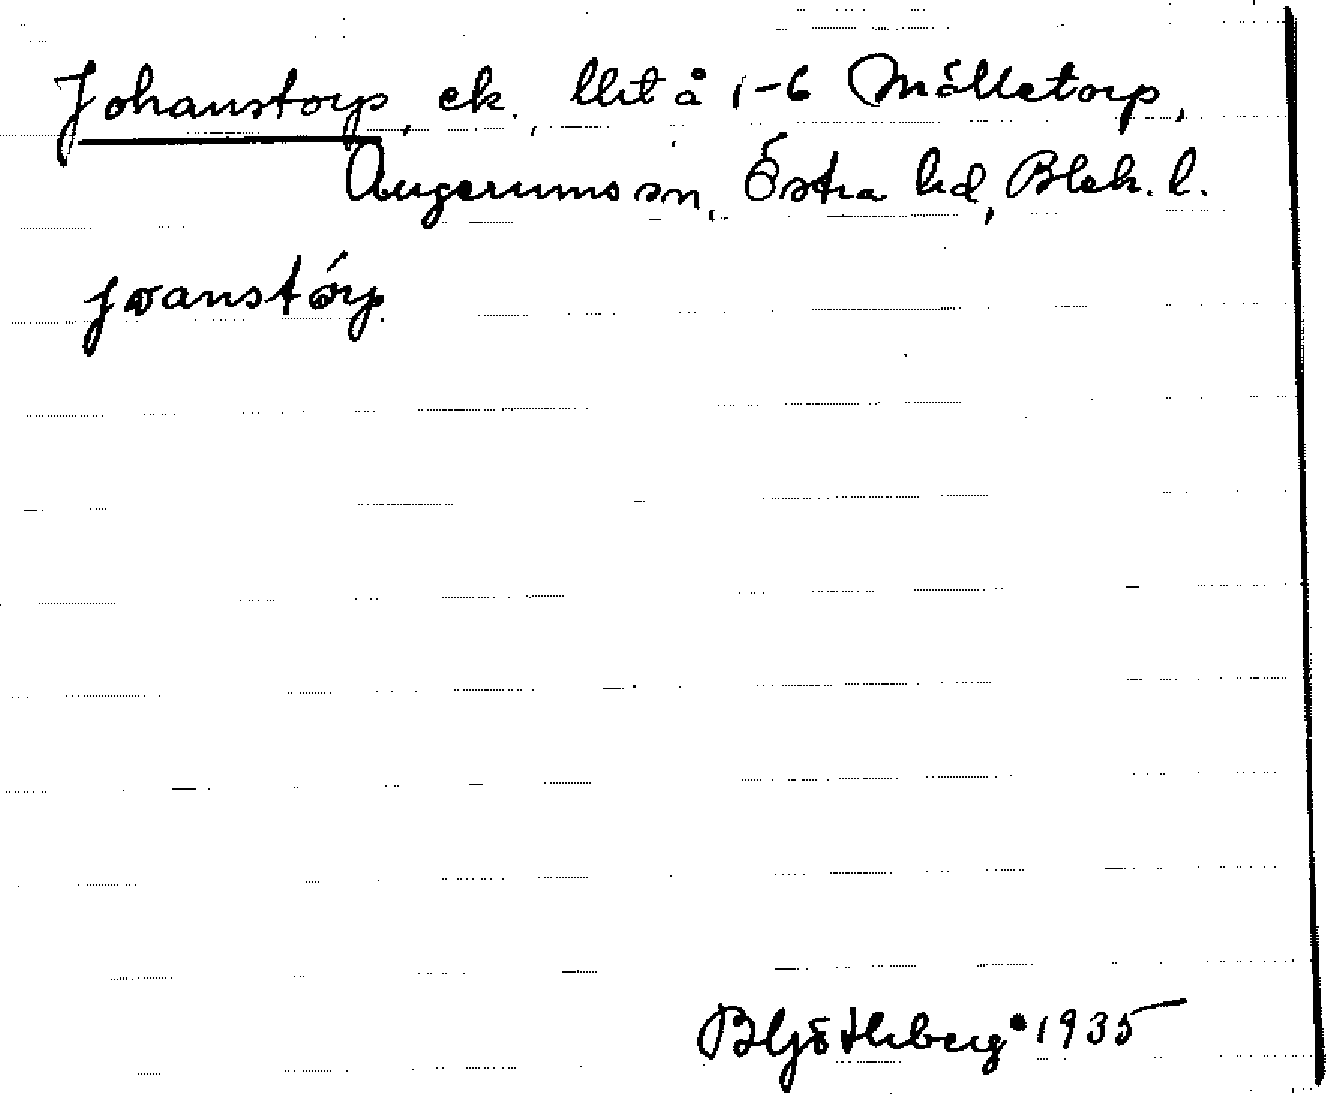 Johanstorp, ek. lht å 1-6 Mölletorp,
Augerums sn, Östra hd, Blek. l.
joanstórp.
B Götlberg 1935